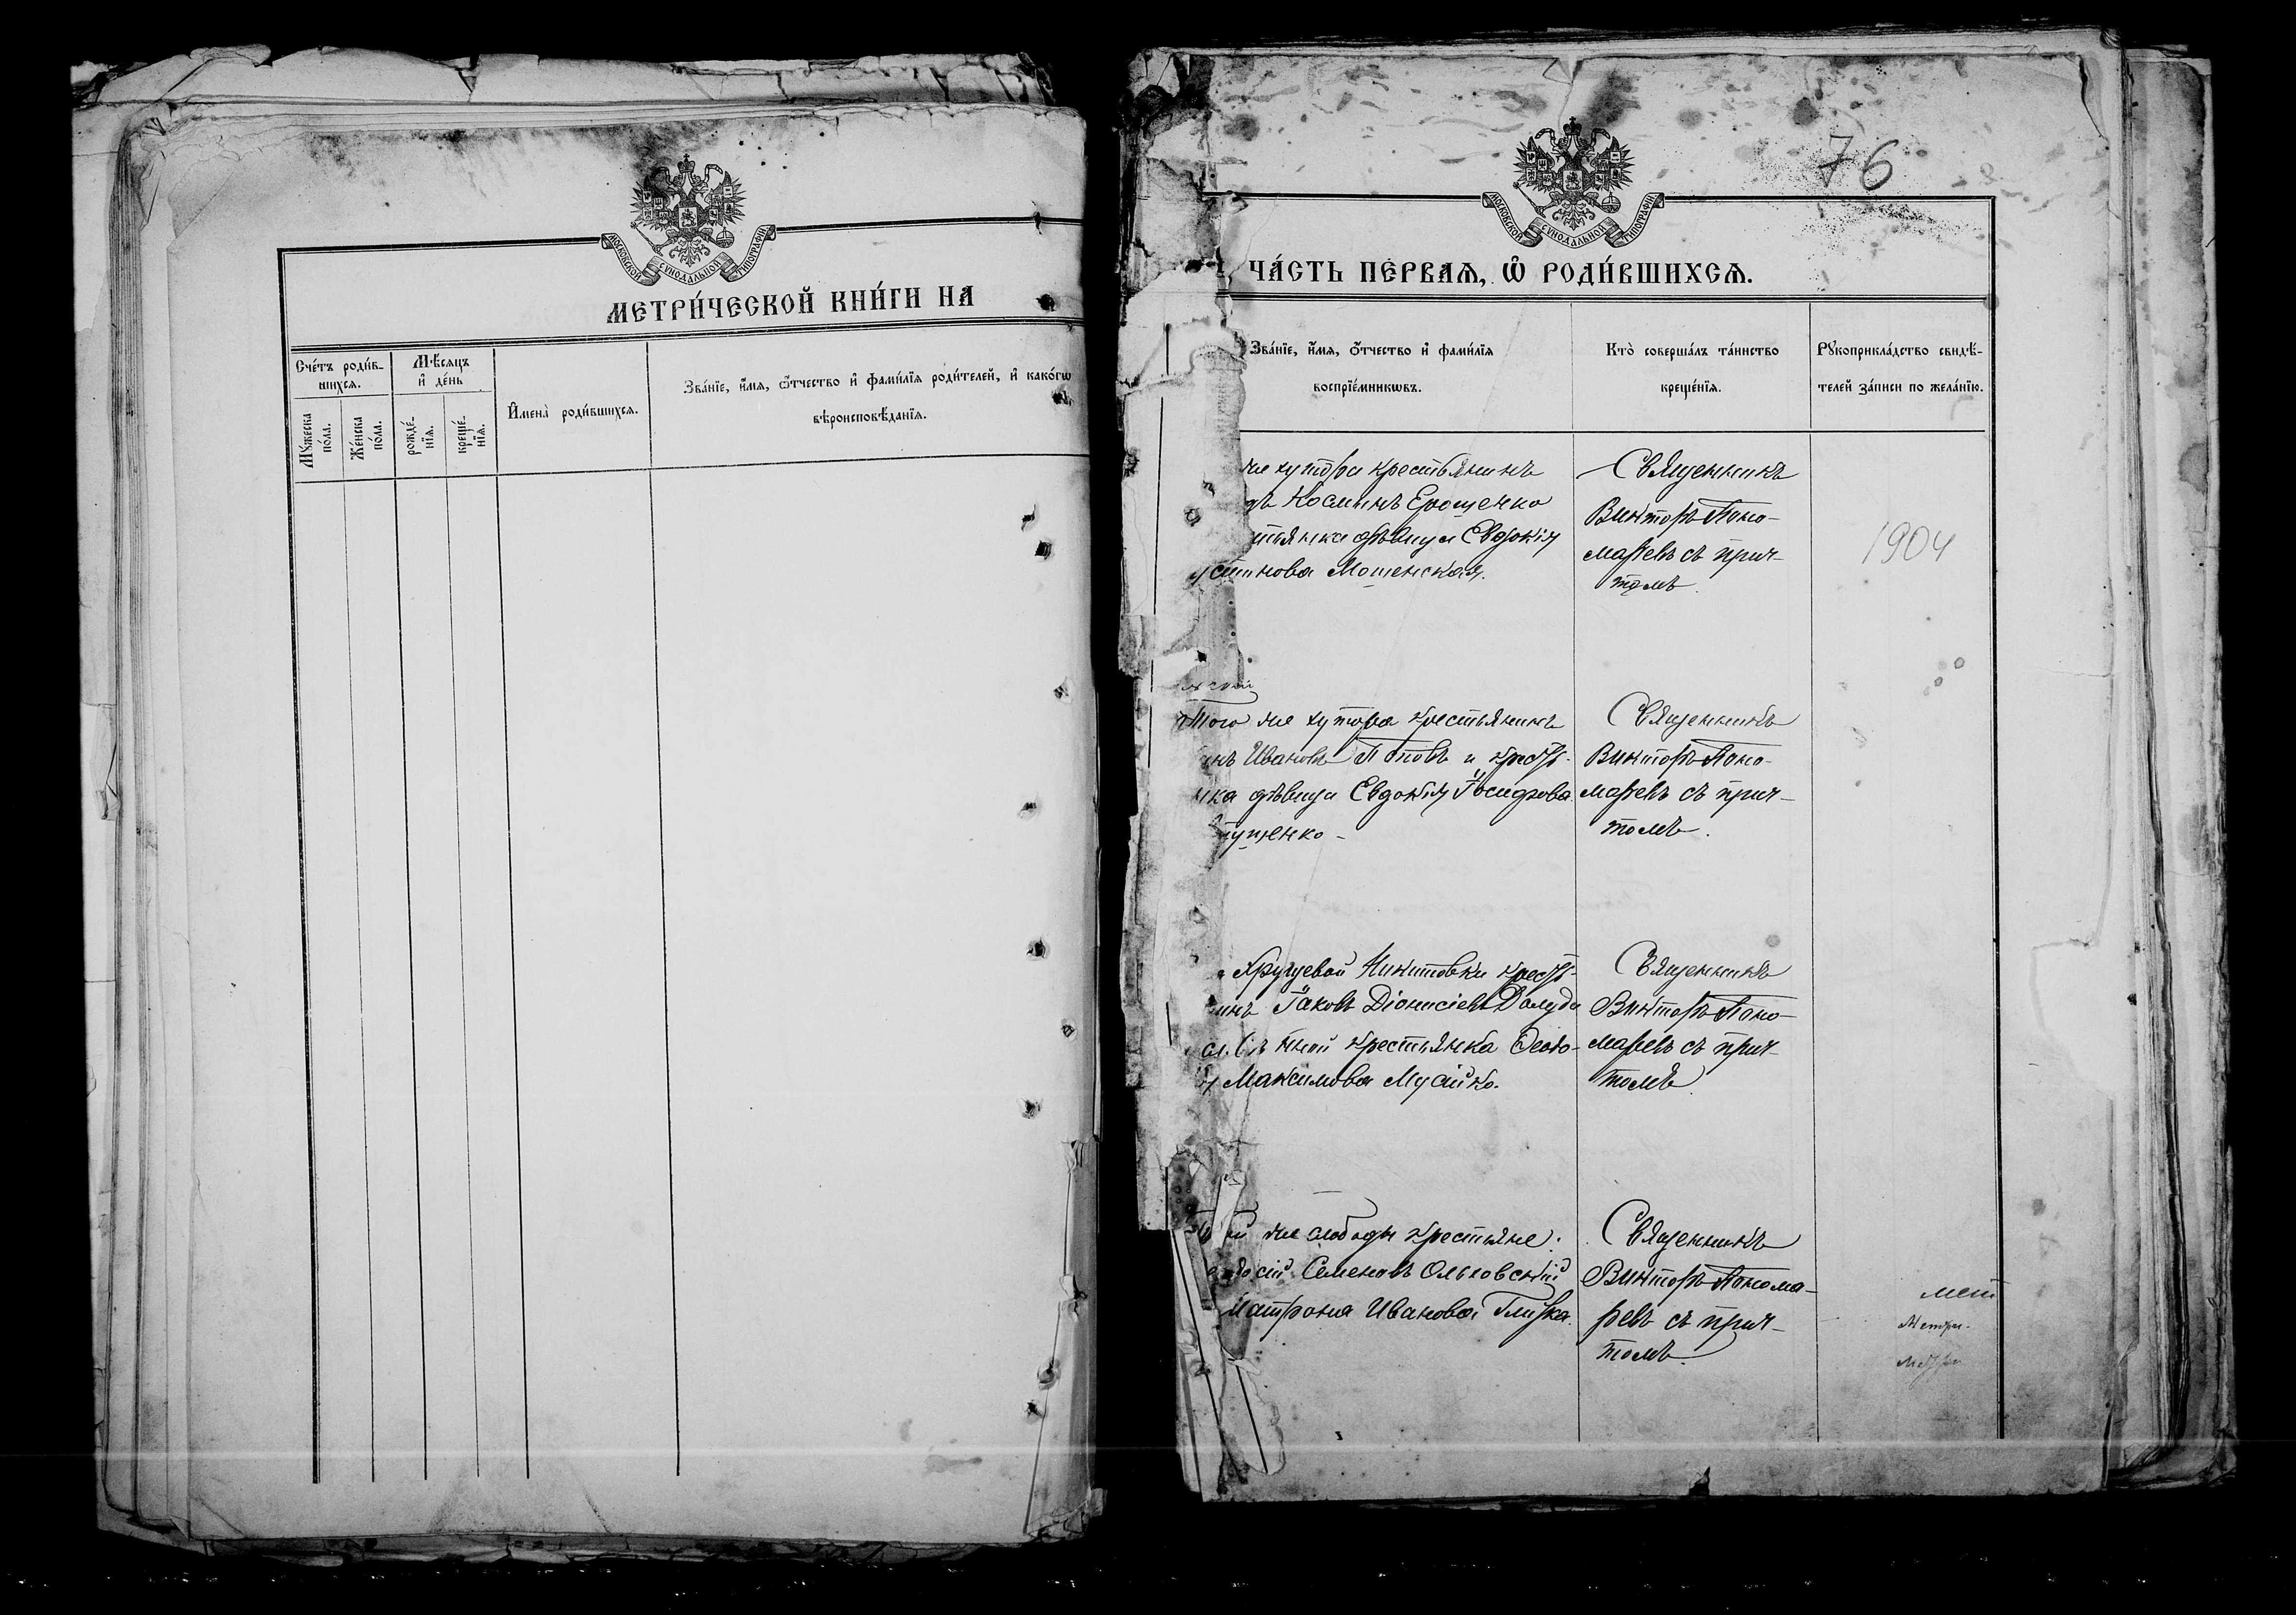 МОСКОВСКОЙ СѴНОДАЛЬНОЙ ТИПОГРАФІИ
МЕТРИ́ЧЕСКОЙ КНИ́ГИ НА
Сче́тъ роди́в-
шихсѧ.
Мꙋ́жеска
по́ла.
Же́нска
по́ла.
Мѣ́сѧцъ
и҆ де́нь
рожде́-
нїѧ.
креще́-
нїѧ.
И҆мена̀ роди́вшихсѧ.
Зва́нїе, и҆́мѧ, ѻ҆́тчество и҆ фами́лїѧ роди́телей, и҆ како́гѡ
вѣроисповѣ́данїѧ.
76
МОСКОВСКОЙ СѴНОДАЛЬНОЙ ТИПОГРАФІИ
ЧА́СТЬ ПЕ́РВАѦ, Ѽ РОДИ́ВШИХСѦ.
Зва́нїе, и҆́мѧ, ѻ҆́тчество и҆ фами́лїѧ
воспрїе́мникѡвъ.
Кто̀ соверша́лъ та́инство
креще́нїѧ.
Рꙋкоприкла́дство свидѣ́-
телей за́писи по жела́нїю.
же хутора крестьянинъ
Косминъ Ерощенко
дѣвица Евдокія
Мошенская.
Священникъ
Викторъ Поно-
маревъ съ прич-
томъ.
1904
Того же хутора крестьянинъ
Ивановъ Титовъ и крестья-
нка дѣвица Евдокія Іосифова
Священникъ
Викторъ Поно-
маревъ съ прич-
томъ.
Хрущевой Никитовки крестья-
нинъ Іаковъ Діонисіевъ Далуда
крестьянка Ѳеодо-
Максимова Мусійко.
Священникъ
Викторъ Поно-
маревъ съ прич-
томъ.
же слободы крестьяне:
Семеновъ Ольховскій
Матрона Иванова Глирка.
Священникъ
Викторъ Понома-
ревъ съ прич-
томъ.
мет
Метри.